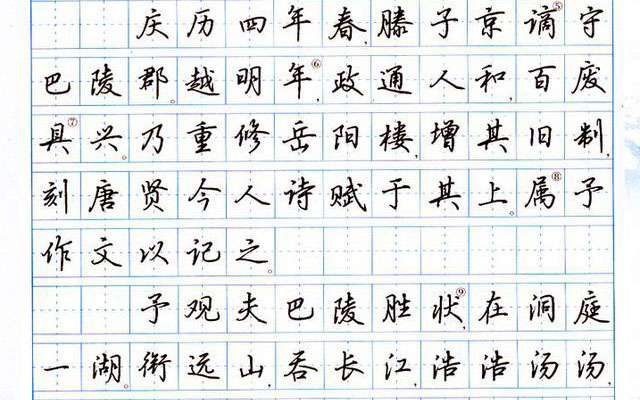 庆历四年春，滕子京谪⑤守
巴陵郡。越明年⑥，政通人和，百废
具⑦兴。乃重修岳阳楼，增其旧制，
刻唐贤今人诗赋于其上。属⑧予
作文以记之。
予观夫巴陵胜状⑨，在洞庭
一湖。衔远山，吞长江，浩浩汤汤，